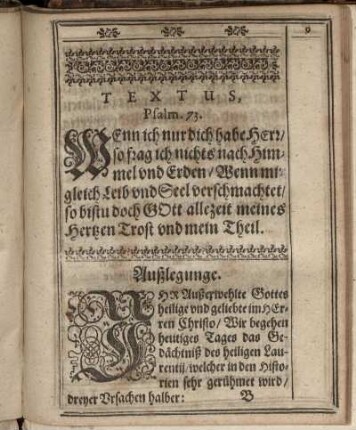 9
TEXTUS,
Psalm. 73.
WEnn ich nur dich habe HErr/
so frag ich nichts nach Him-
mel vnd Erden/ Wenn mi
gleich Leib vnd Seel verschmachtet/
so bistu doch GOtt allezeit meines
Hertzen Trost vnd mein Theil.
Außlegunge.
IHR Außerwehlte Gottes
heilige vnd geliebte im HEr-
ren Christo/ Wir begehen
heutiges Tages das Ge-
dächtniß des heiligen Lau-
rentij/ welcher in den Histo-
rien sehr gerühmet wird/
dreyer Vrsachen halber: B